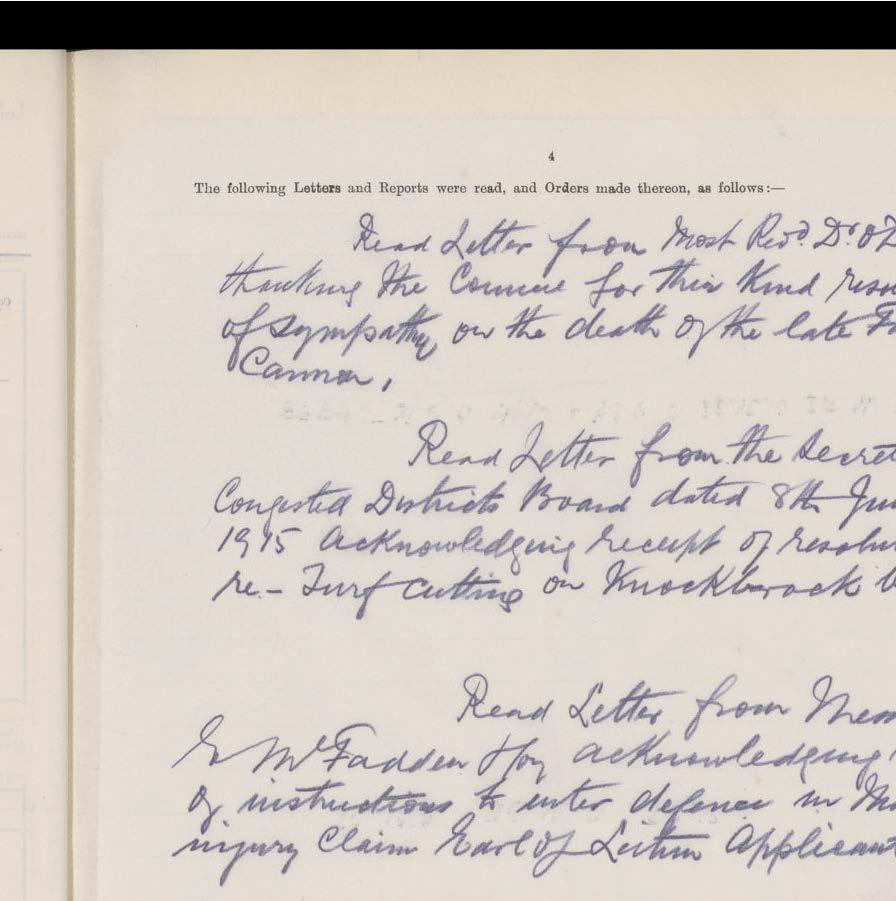 4
The following Letters and Reports were read, and Orders made thereon, as follows:—
Read Letter from Most Revd. Dr. O'D
thanking the Council for their kind reso
of sympathy on the death of the late
Cannon.
Read Letter from the Secret
Congested Districts Board dated 8th Jun
1915 acknowledging receipt of resolu
re-Turf cutting on Knockbrack
Read Letter from Mess
E McFadden & Son acknowledging
of instructions to enter defence in
injury Claim Earl of Leitrim Applicant